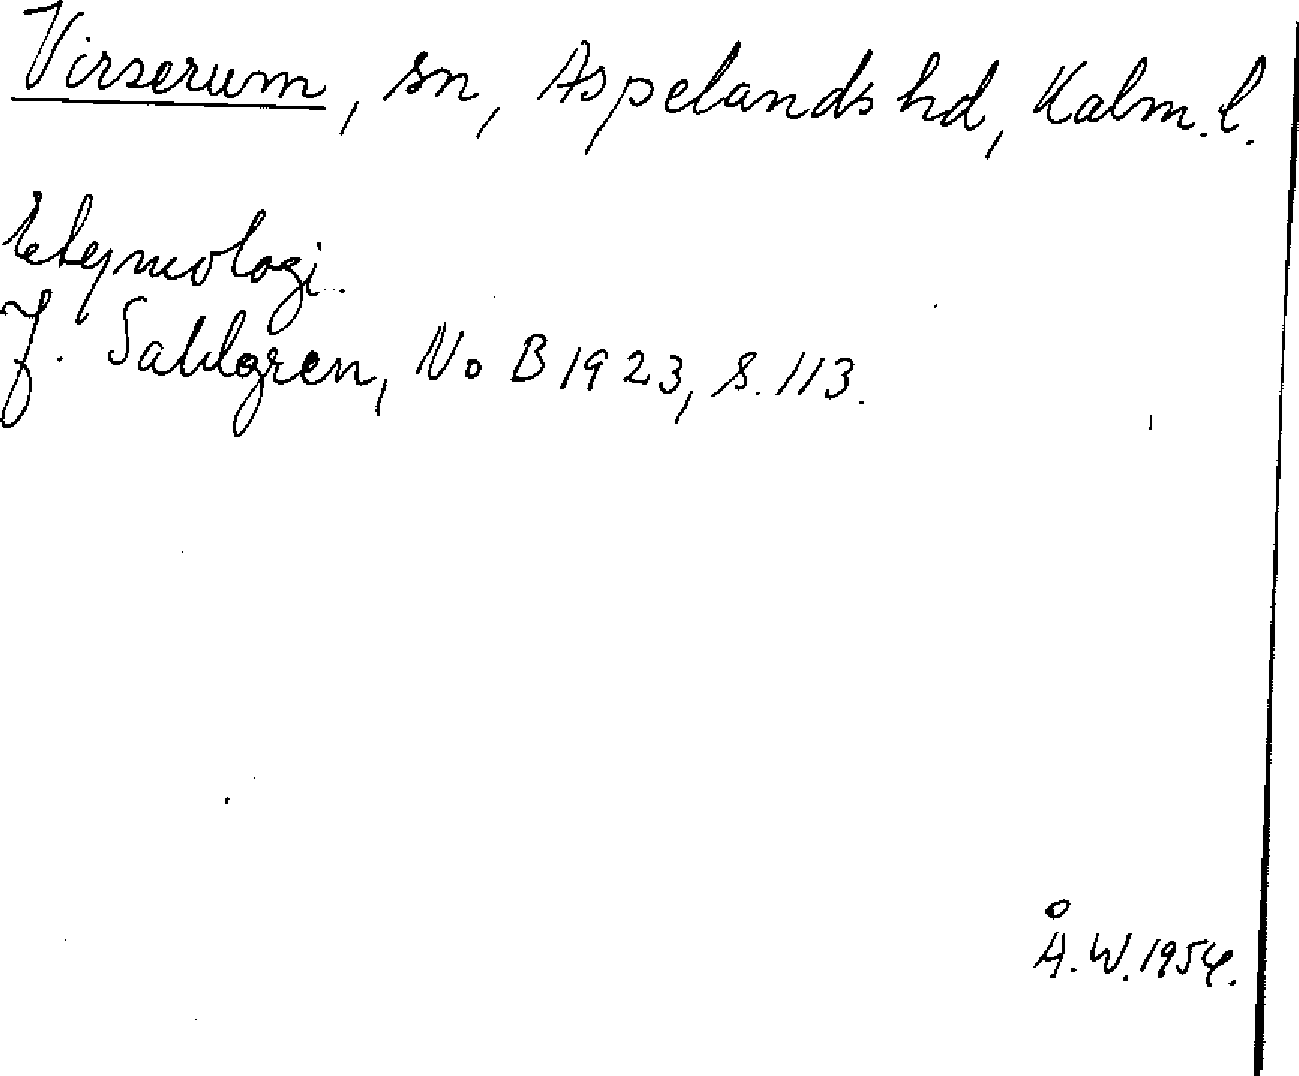 Virserum, sn, Aspelands hd, Kalm. l.
Etymologi.
J. Sahlgren, No B 1923, s. 113.
Å. W. 1954.